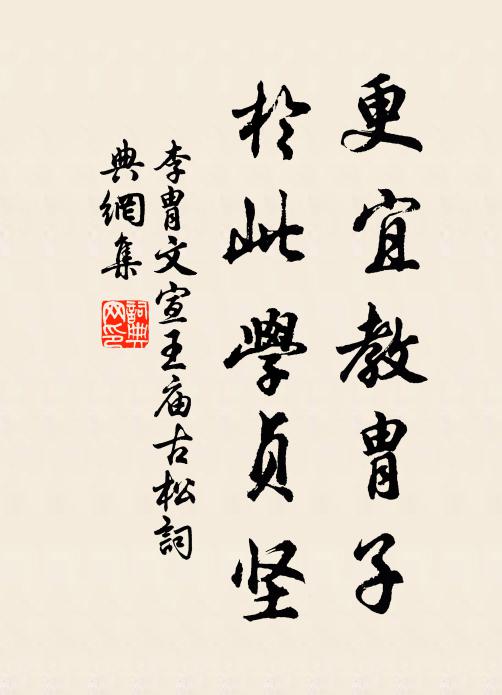 更宜教胄子
於此學貞坚
李胄文宣王庙古松詞
典網集
詞典
网印